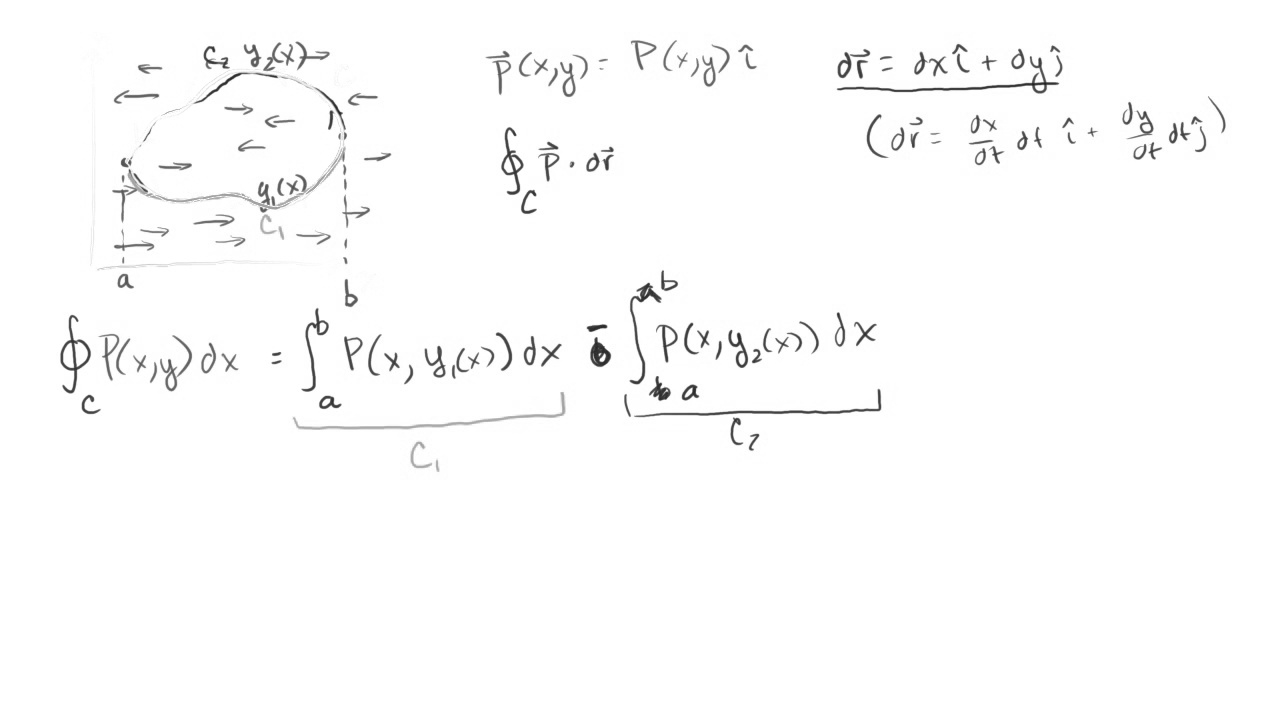 C₂ y₂(x)
y₁(x)
C₁
a
b
p⃗(x,y) = P(x,y) î
∮_C p⃗ · dr⃗
dr⃗ = dx î + dy ĵ
(dr⃗ = dx/dt dt î + dy/dt dt ĵ)
∮_C P(x,y) dx = ∫_a^b P(x, y₁(x)) dx - ∫_a^b P(x, y₂(x)) dx
C₁
C₂